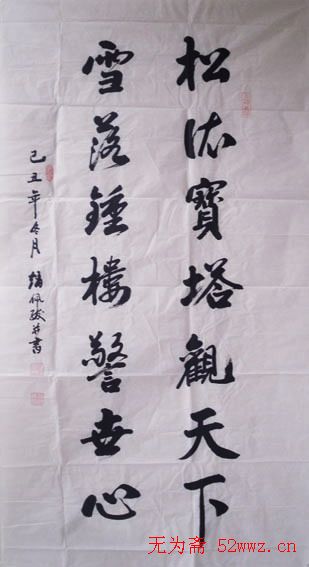 松依寶塔觀天下
雪落鐘樓警世心
己丑年冬月
并書
无为斋 52wwz.cn